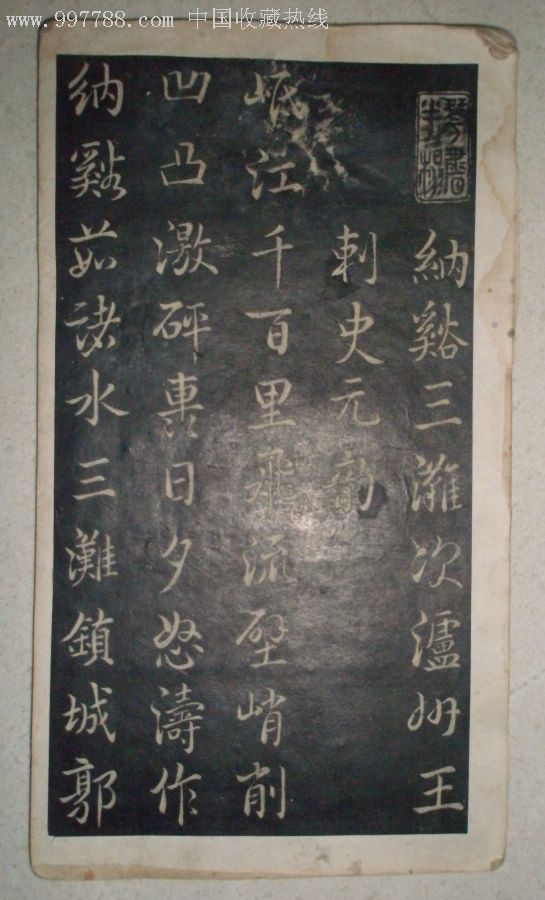 www.997788.com 中国收藏热线
納谿三灘次瀘州王
刺史元韵
岷江千百里飛流壁峭削
凹凸激砰轟日夕怒濤作
納谿茹諸水三灘鎮城郭